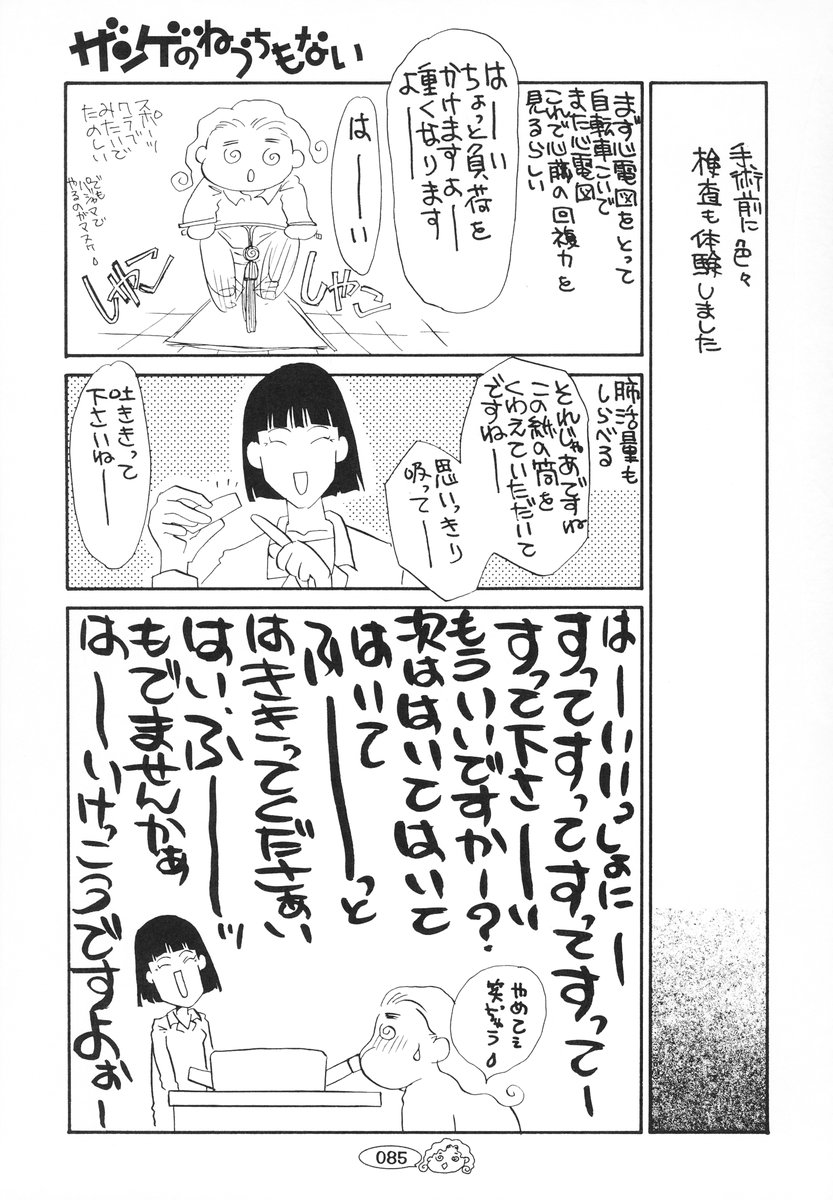 ザンゲのねうちもない
手術前に色々
検査も体験しました
まず心電図をとって
自転車こいで
また心電図
これで心臓の回複力を
見るらしい
はーーい
ちょっと負荷を
かけますよーー
重くなります
よーー
はーーい
スポーツ
クラブ
みたいで
たのしい
でも
パジャマで
やるのがマヌケ
しゃこ
しゃこ
肺活量も
しらべる
それじゃあですね
この紙の筒を
くわえていただいて
ですねーー
思いっきり
吸ってーー
吐ききって
下さいねーー
はーーいいっしょにーー
すってすってすってすってー
すって下さーーい
もういいですかー?
次ははいてはいて
はいて
ふーーーっと
はききってくださぁい
はい、ふーーーッ
もでませんかぁ
はーーいけっこうですよぉー
やめてぇ
笑っちゃう
085